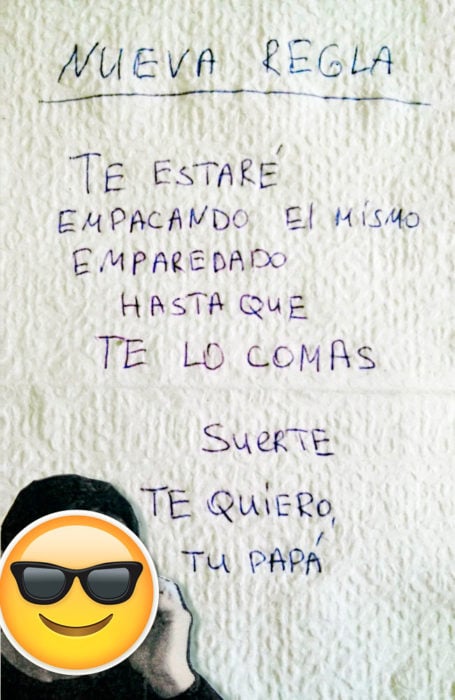 NUEVA REGLA
TE ESTARÉ
EMPACANDO El MISMO
EMPAREDADO
HASTA QUE
TE LO COMAS
SUERTE
TE QUIERO,
TU PAPÁ